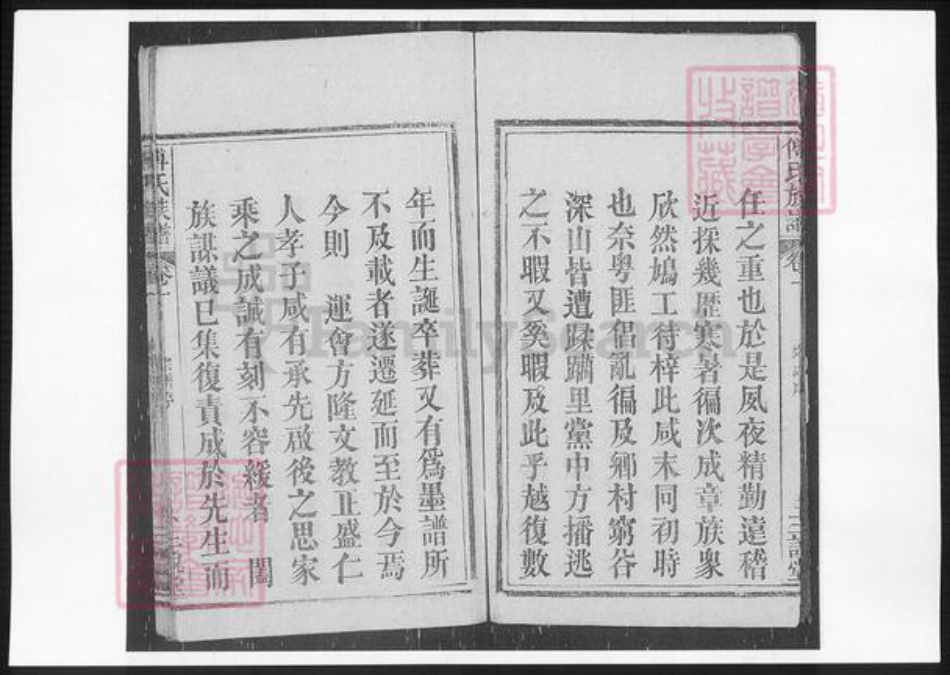 傅氏族譜
卷一
任之重也於是夙夜精勤遠稽
近採幾歷寒暑徧次成章族衆
欣然鳩工待梓此咸末同初時
也奈粵匪倡亂徧及鄉村窮谷
深山皆遭蹂躪里黨中方播逃
之不暇又奚暇及此乎越復數
年而生誕卒葬又有爲墨譜所
不及載者遂遷延而至於今焉
今則　運會方隆文教正盛仁
人孝子咸有承先啟後之思家
乘之成誠有刻不容緩者　闔
族謀議已集復責成於先生而
傅氏族譜
卷一
FamilySearch